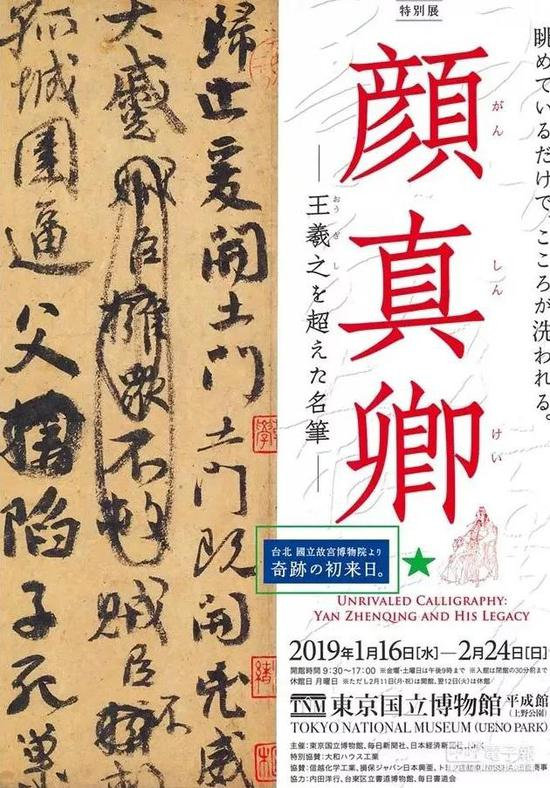 特別展
眺めているだけで、こころが洗われる。
顔真卿
がんしんけい
―王羲之を超えた名筆―
おうぎし
台北 國立故宮博物院より
奇跡の初来日。
UNRIVALED CALLIGRAPHY:
YAN ZHENQING AND HIS LEGACY
2019年1月16日[水]―2月24日[日]
開館時間 9:30〜17:00 ※金曜・土曜日は午後9時まで ※入館は閉館の30分前まで
休館日 月曜日 ※ただし2月11日(月・祝)は開館、翌12日(火)は休館
東京国立博物館 平成館
(上野公園)
TOKYO NATIONAL MUSEUM (UENO PARK)
主催:東京国立博物館、毎日新聞社、日本経済新聞社、NHK
特別協賛:大和ハウス工業
協賛:信越化学工業、損保ジャパン日本興亜、トヨタ自動車、NISSHA
協力:内田洋行、台東区立書道博物館、毎日書道会
歸止爰開土門土門既開兇威
大蹙賊臣擁衆不救賊臣不
孤城圍逼父陷子死巢
電子報